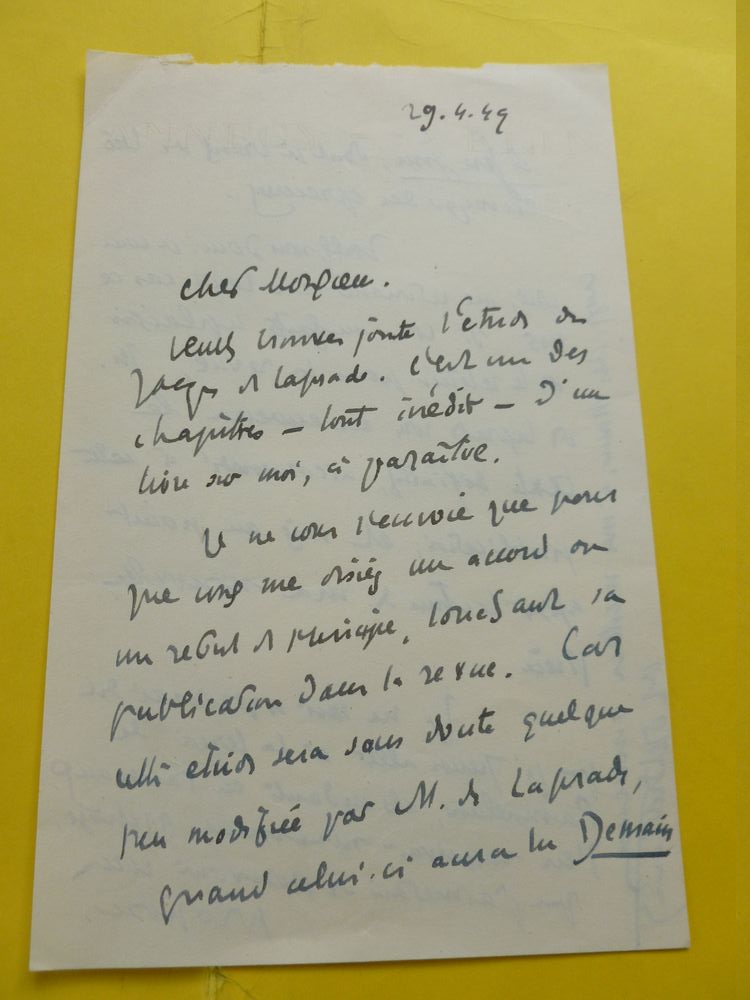 29.4.49
cher
veuillez trouver jointe l'étude de
Jacques de Laprade. C'est un des
chapitres – tout inédit – d'un
livre sur moi, à paraître.
Je ne vous l'envoie que pour
que vous me disiez un accord ou
un refus de principe, touchant sa
publication dans la revue. Car
cette étude sera sans doute quelque
peu modifiée par M. de Laprade,
quand celui-ci aura lu Demain